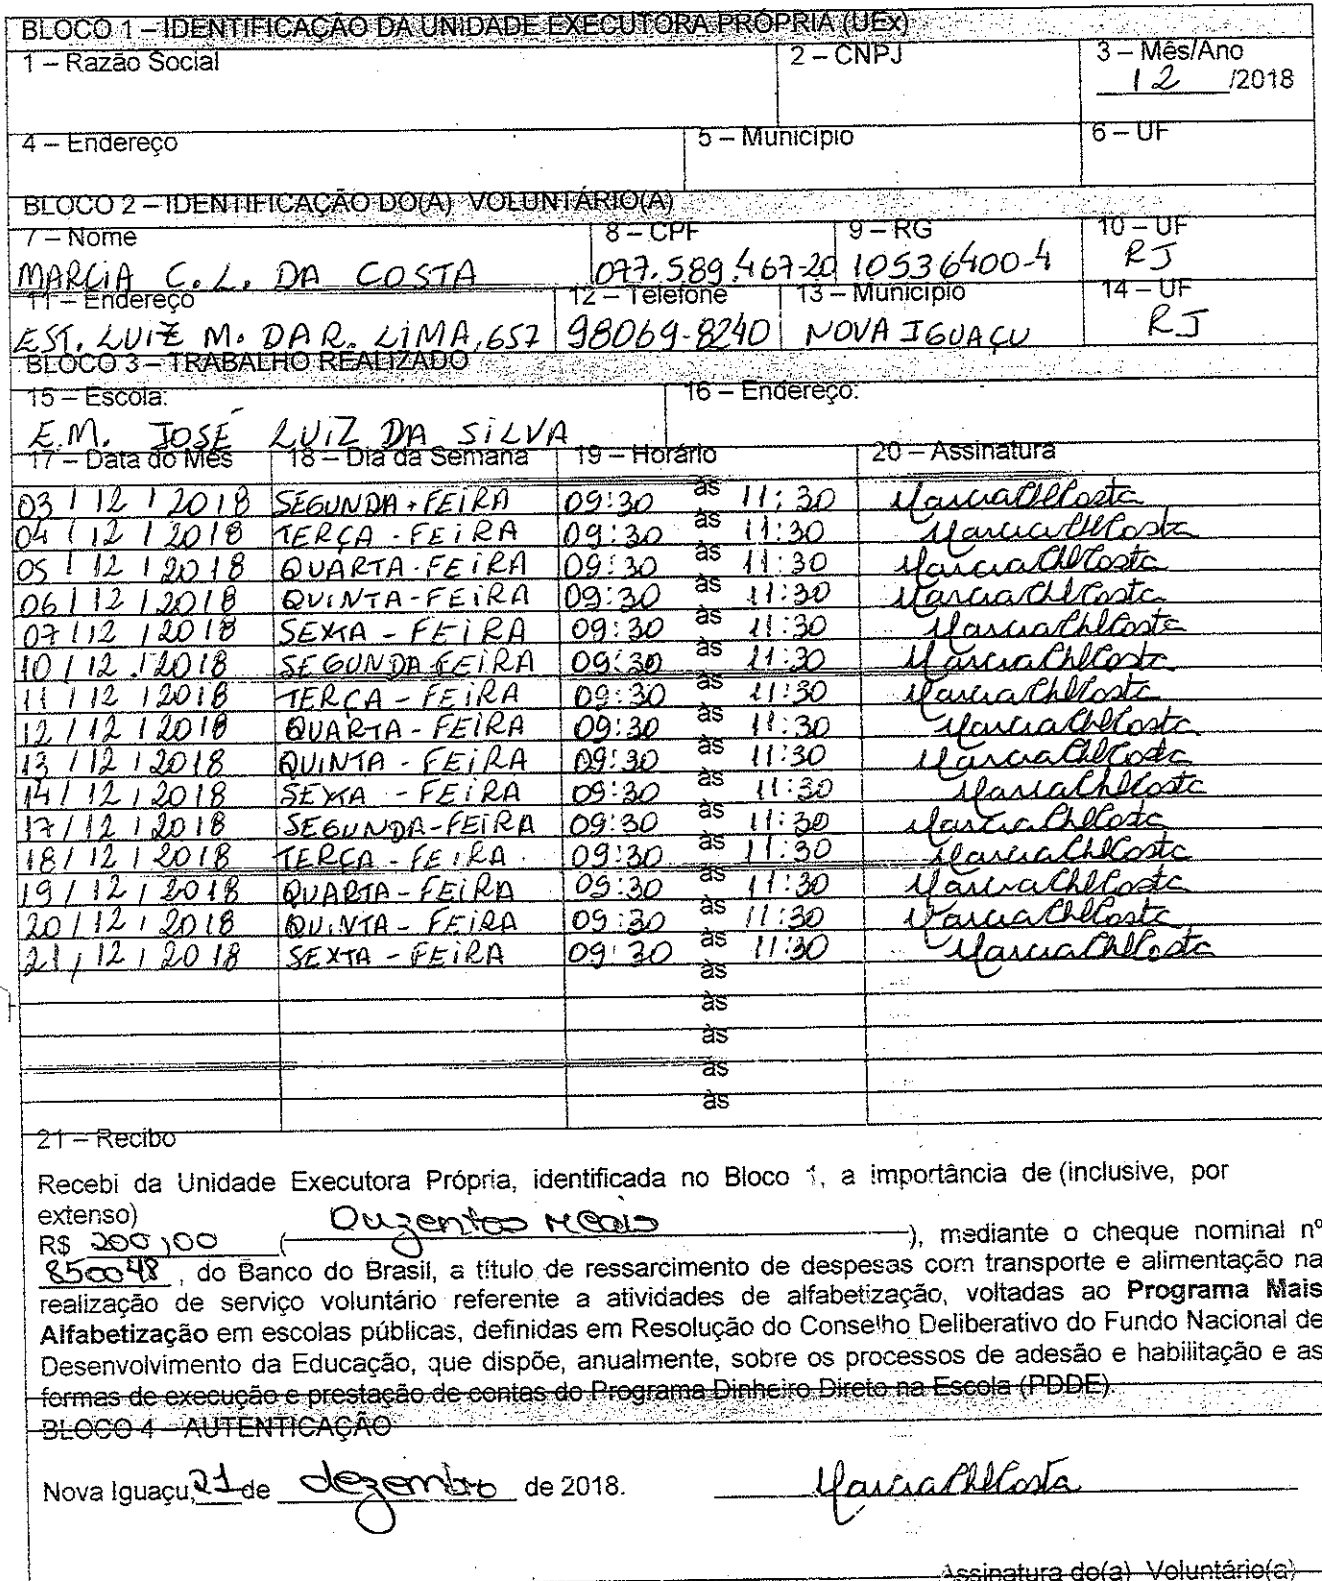 BLOCO 1 – IDENTIFICAÇÃO DA UNIDADE EXECUTORA PRÓPRIA (UEx)
1 – Razão Social 2 – CNPJ 3 – Mês/Ano
12 /2018
4 – Endereço 5 – Município 6 – UF
BLOCO 2 – IDENTIFICAÇÃO DO(A) VOLUNTÁRIO(A)
7 – Nome 8 – CPF 9 – RG 10 – UF
MARCIA C. L. DA COSTA 077.589.467-20 10536400-4 RJ
11 – Endereço 12 – Telefone 13 – Município 14 – UF
EST. LUIZ M. DA R. LIMA, 657 98069-8240 NOVA IGUAÇU RJ
BLOCO 3 – TRABALHO REALIZADO
15 – Escola: 16 – Endereço:
E.M. JOSÉ LUIZ DA SILVA
17 – Data do Mês 18 – Dia da Semana 19 – Horário 20 – Assinatura
03 / 12 / 2018 SEGUNDA-FEIRA 09:30 às 11:30 Marcia CLCosta
04 / 12 / 2018 TERÇA-FEIRA 09:30 às 11:30 Marcia CLCosta
05 / 12 / 2018 QUARTA-FEIRA 09:30 às 11:30 Marcia CLCosta
06 / 12 / 2018 QUINTA-FEIRA 09:30 às 11:30 Marcia CLCosta
07 / 12 / 2018 SEXTA-FEIRA 09:30 às 11:30 Marcia CLCosta
10 / 12 / 2018 SEGUNDA-FEIRA 09:30 às 11:30 Marcia CLCosta
11 / 12 / 2018 TERÇA-FEIRA 09:30 às 11:30 Marcia CLCosta
12 / 12 / 2018 QUARTA-FEIRA 09:30 às 11:30 Marcia CLCosta
13 / 12 / 2018 QUINTA-FEIRA 09:30 às 11:30 Marcia CLCosta
14 / 12 / 2018 SEXTA-FEIRA 09:30 às 11:30 Marcia CLCosta
17 / 12 / 2018 SEGUNDA-FEIRA 09:30 às 11:30 Marcia CLCosta
18 / 12 / 2018 TERÇA-FEIRA 09:30 às 11:30 Marcia CLCosta
19 / 12 / 2018 QUARTA-FEIRA 09:30 às 11:30 Marcia CLCosta
20 / 12 / 2018 QUINTA-FEIRA 09:30 às 11:30 Marcia CLCosta
21 / 12 / 2018 SEXTA-FEIRA 09:30 às 11:30 Marcia CLCosta
às
às
às
às
às
21 – Recibo
Recebi da Unidade Executora Própria, identificada no Bloco 1, a importância de (inclusive, por
extenso)
R$ 200,00 (Duzentos reais), mediante o cheque nominal nº
850048, do Banco do Brasil, a título de ressarcimento de despesas com transporte e alimentação na
realização de serviço voluntário referente a atividades de alfabetização, voltadas ao Programa Mais
Alfabetização em escolas públicas, definidas em Resolução do Conselho Deliberativo do Fundo Nacional de
Desenvolvimento da Educação, que dispõe, anualmente, sobre os processos de adesão e habilitação e as
formas de execução e prestação de contas do Programa Dinheiro Direto na Escola (PDDE).
BLOCO 4 – AUTENTICAÇÃO
Nova Iguaçu, 21 de dezembro de 2018. Marcia CLCosta
Assinatura do(a) Voluntário(a)